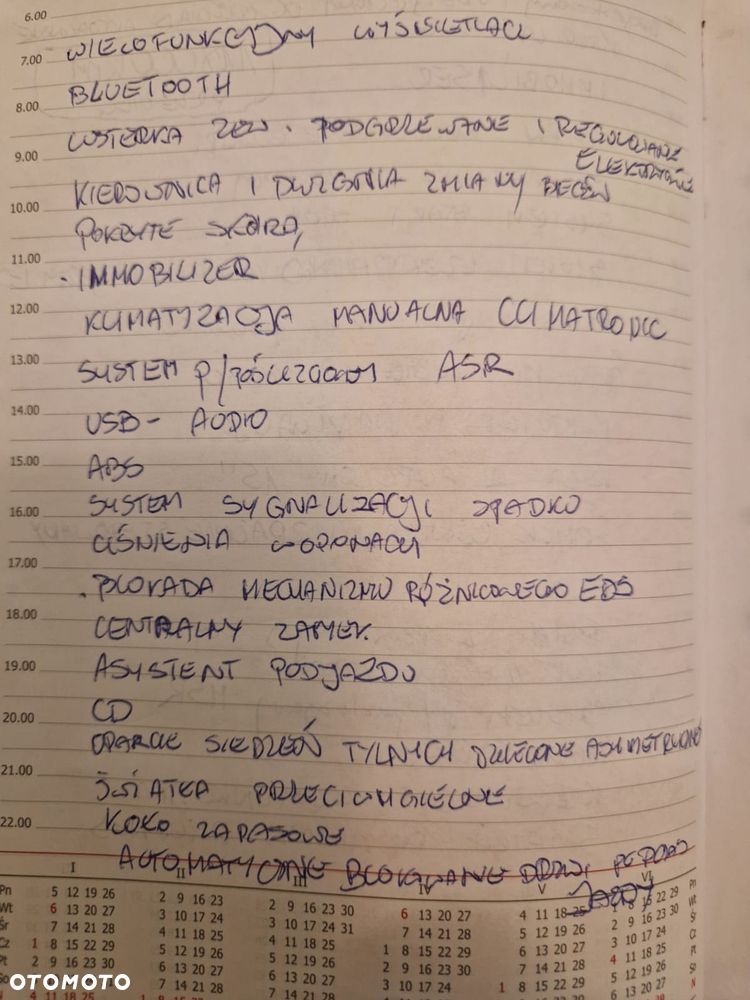 6.00
7.00 WIELOFUNKCYJNY WYŚWIETLACZ
BLUETOOTH
8.00
LUSTERKA ZEW. PODGRZEWANE I REGULOWANE
ELEKTRYCZNIE
9.00
KIEROWNICA I DŹWIGNIA ZMIANY BIEGÓW
10.00
POKRYTE SKÓRĄ,
11.00
· IMMOBILIZER
12.00
KLIMATYZACJA MANUALNA CLIMATRONIC
13.00
SYSTEM P/POŚLIZGOWY ASR
14.00
USB - AUDIO
15.00
ABS
SYSTEM SYGNALIZACJI SPADKU
16.00
CIŚNIENIA W OPONACH
17.00
· BLOKADA MECHANIZMU RÓŻNICOWEGO EDS
18.00
CENTRALNY ZAMEK
19.00
ASYSTENT PODJAZDU
CD
20.00
OPARCIE SIEDZEŃ TYLNYCH DZIELONE ASYMETRYCZNIE
21.00
ŚWIATŁA PRZECIWMGIELNE
22.00
KOŁO ZAPASOWE
AUTOMATYCZNE BLOKOWANIE DRZWI PODCZAS
JAZDY
I II III IV V VI
Pn 5 12 19 26 2 9 16 23 2 9 16 23 30 6 13 20 27 4 11 18 25 1 8 15 22 29 Pn
Wt 6 13 20 27 3 10 17 24 3 10 17 24 31 7 14 21 28 5 12 19 26 2 9 16 23 30
Śr 7 14 21 28 4 11 18 25 4 11 18 25 1 8 15 22 29 6 13 20 27 3 10 17 24 Śr
Cz 1 8 15 22 29 5 12 19 26 5 12 19 26 2 9 16 23 30 7 14 21 28 4 11 18 25
Pt 2 9 16 23 30 6 13 20 27 6 13 20 27 3 10 17 24 1 8 15 22 29 5 12 19 26
So 7 14 21 28 7 14 21 28
OTOMOTO